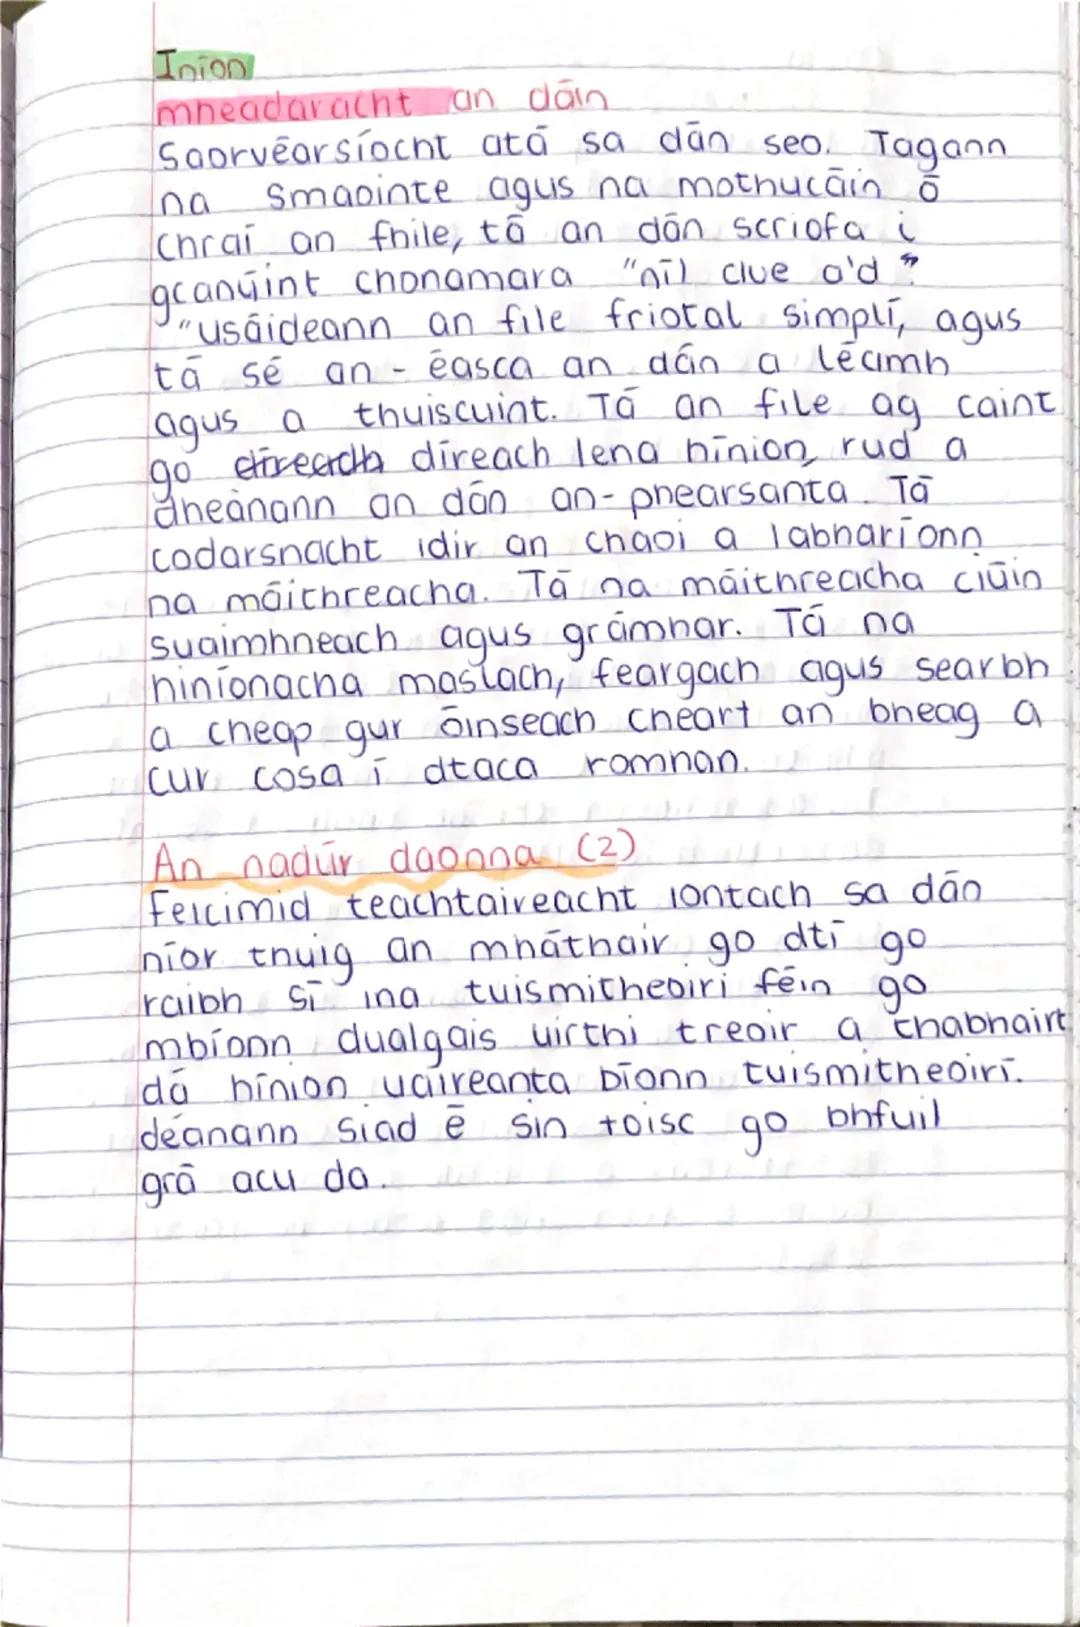 Iníon
mheadaracht an dáin
Saorvéarsíocht atá sa dán seo. Tagann
na smaointe agus na mothucáin ó
chraí an fhile, tá an dán scriofa i
gcanúint chonamara "níl clue a'd"
"usáideann an file friotal simplí, agus
tá sé an-éasca an dán a léamh
agus a thuiscuint. Tá an file ag caint
go díreach lena hínion, rud a
dheánann an dán an-phearsanta. Tá
codarsnacht idir an chaoi a labharíonn
na máithreacha. Tá na máithreacha ciúin
suaimhneach agus grámhar. Tá na
hiníonacha maslach, feargach agus searbh
a cheap gur óinseach cheart an bheag a
cur cosa i dtaca romhan.
An nadúr daonna (2)
feicimid teachtaireacht iontach sa dán
níor thuig an mháthair go dtí go
raibh sí ina tuismitheoiri féin go
mbíonn dualgais uirthi treoir a thabhairt
dá hínion uaireanta bíonn tuismitheoirí.
déanann siad é sin toisc go bhfuil
grá acu do.